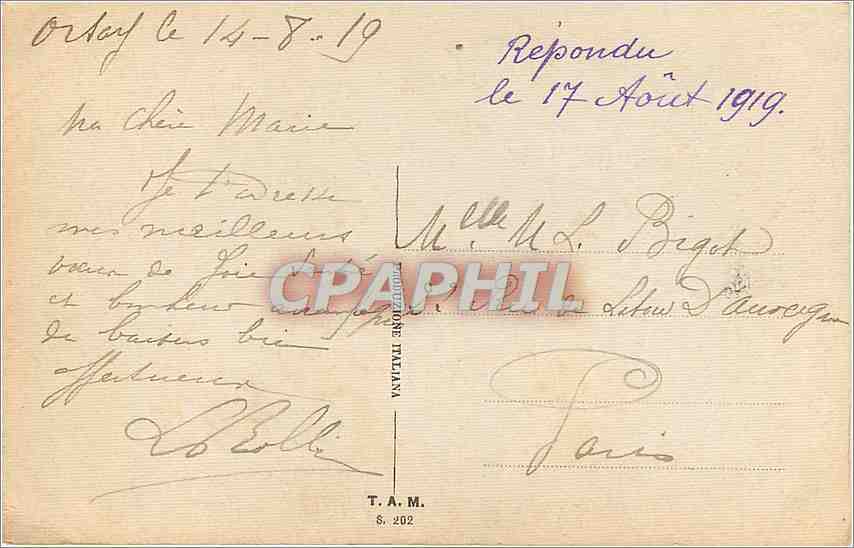 le 14-8-19
Répondu
le 17 Août 1919.
Ma Chère Marie
Je t'adresse
mes meilleurs
vœux de Joie Santé
et bonheur
de baisers bien
affectueux
Mlle. M L. Bigot
Rue de Latour D'auvergne
Paris
CPAPHIL
PRODUZIONE ITALIANA
T. A. M.
S. 202